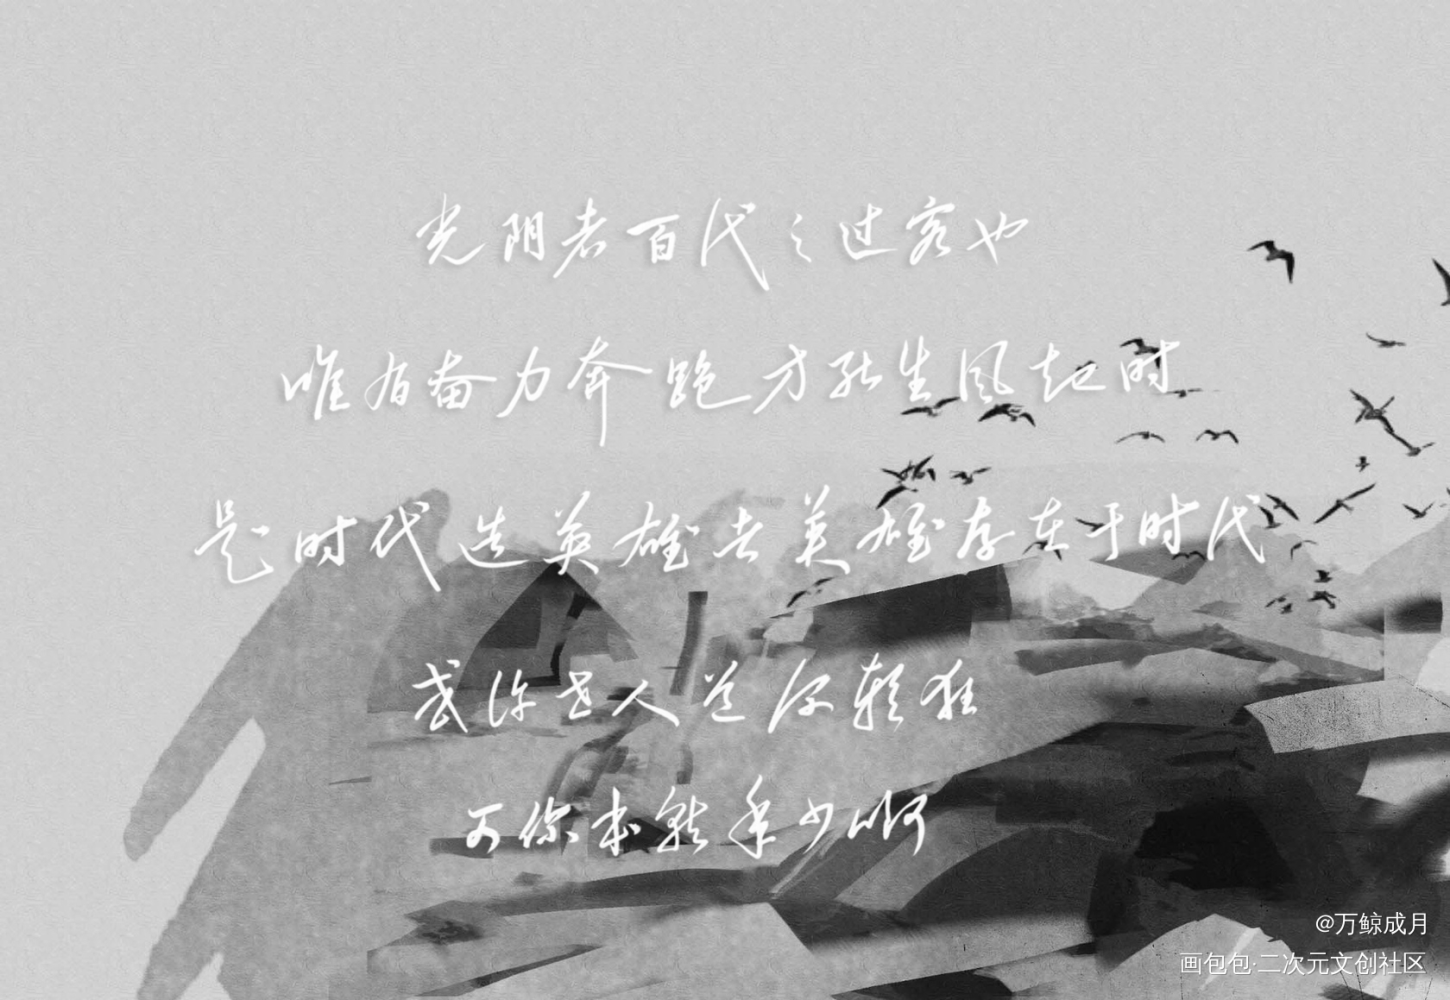 光阴者百代之过客也
唯有奋力奔跑才能生风起时
是时代造英雄去英雄存在于时代
或许世人道你轻狂
可你本就年少啊
@万鲸成月
画包包·二次元文创社区